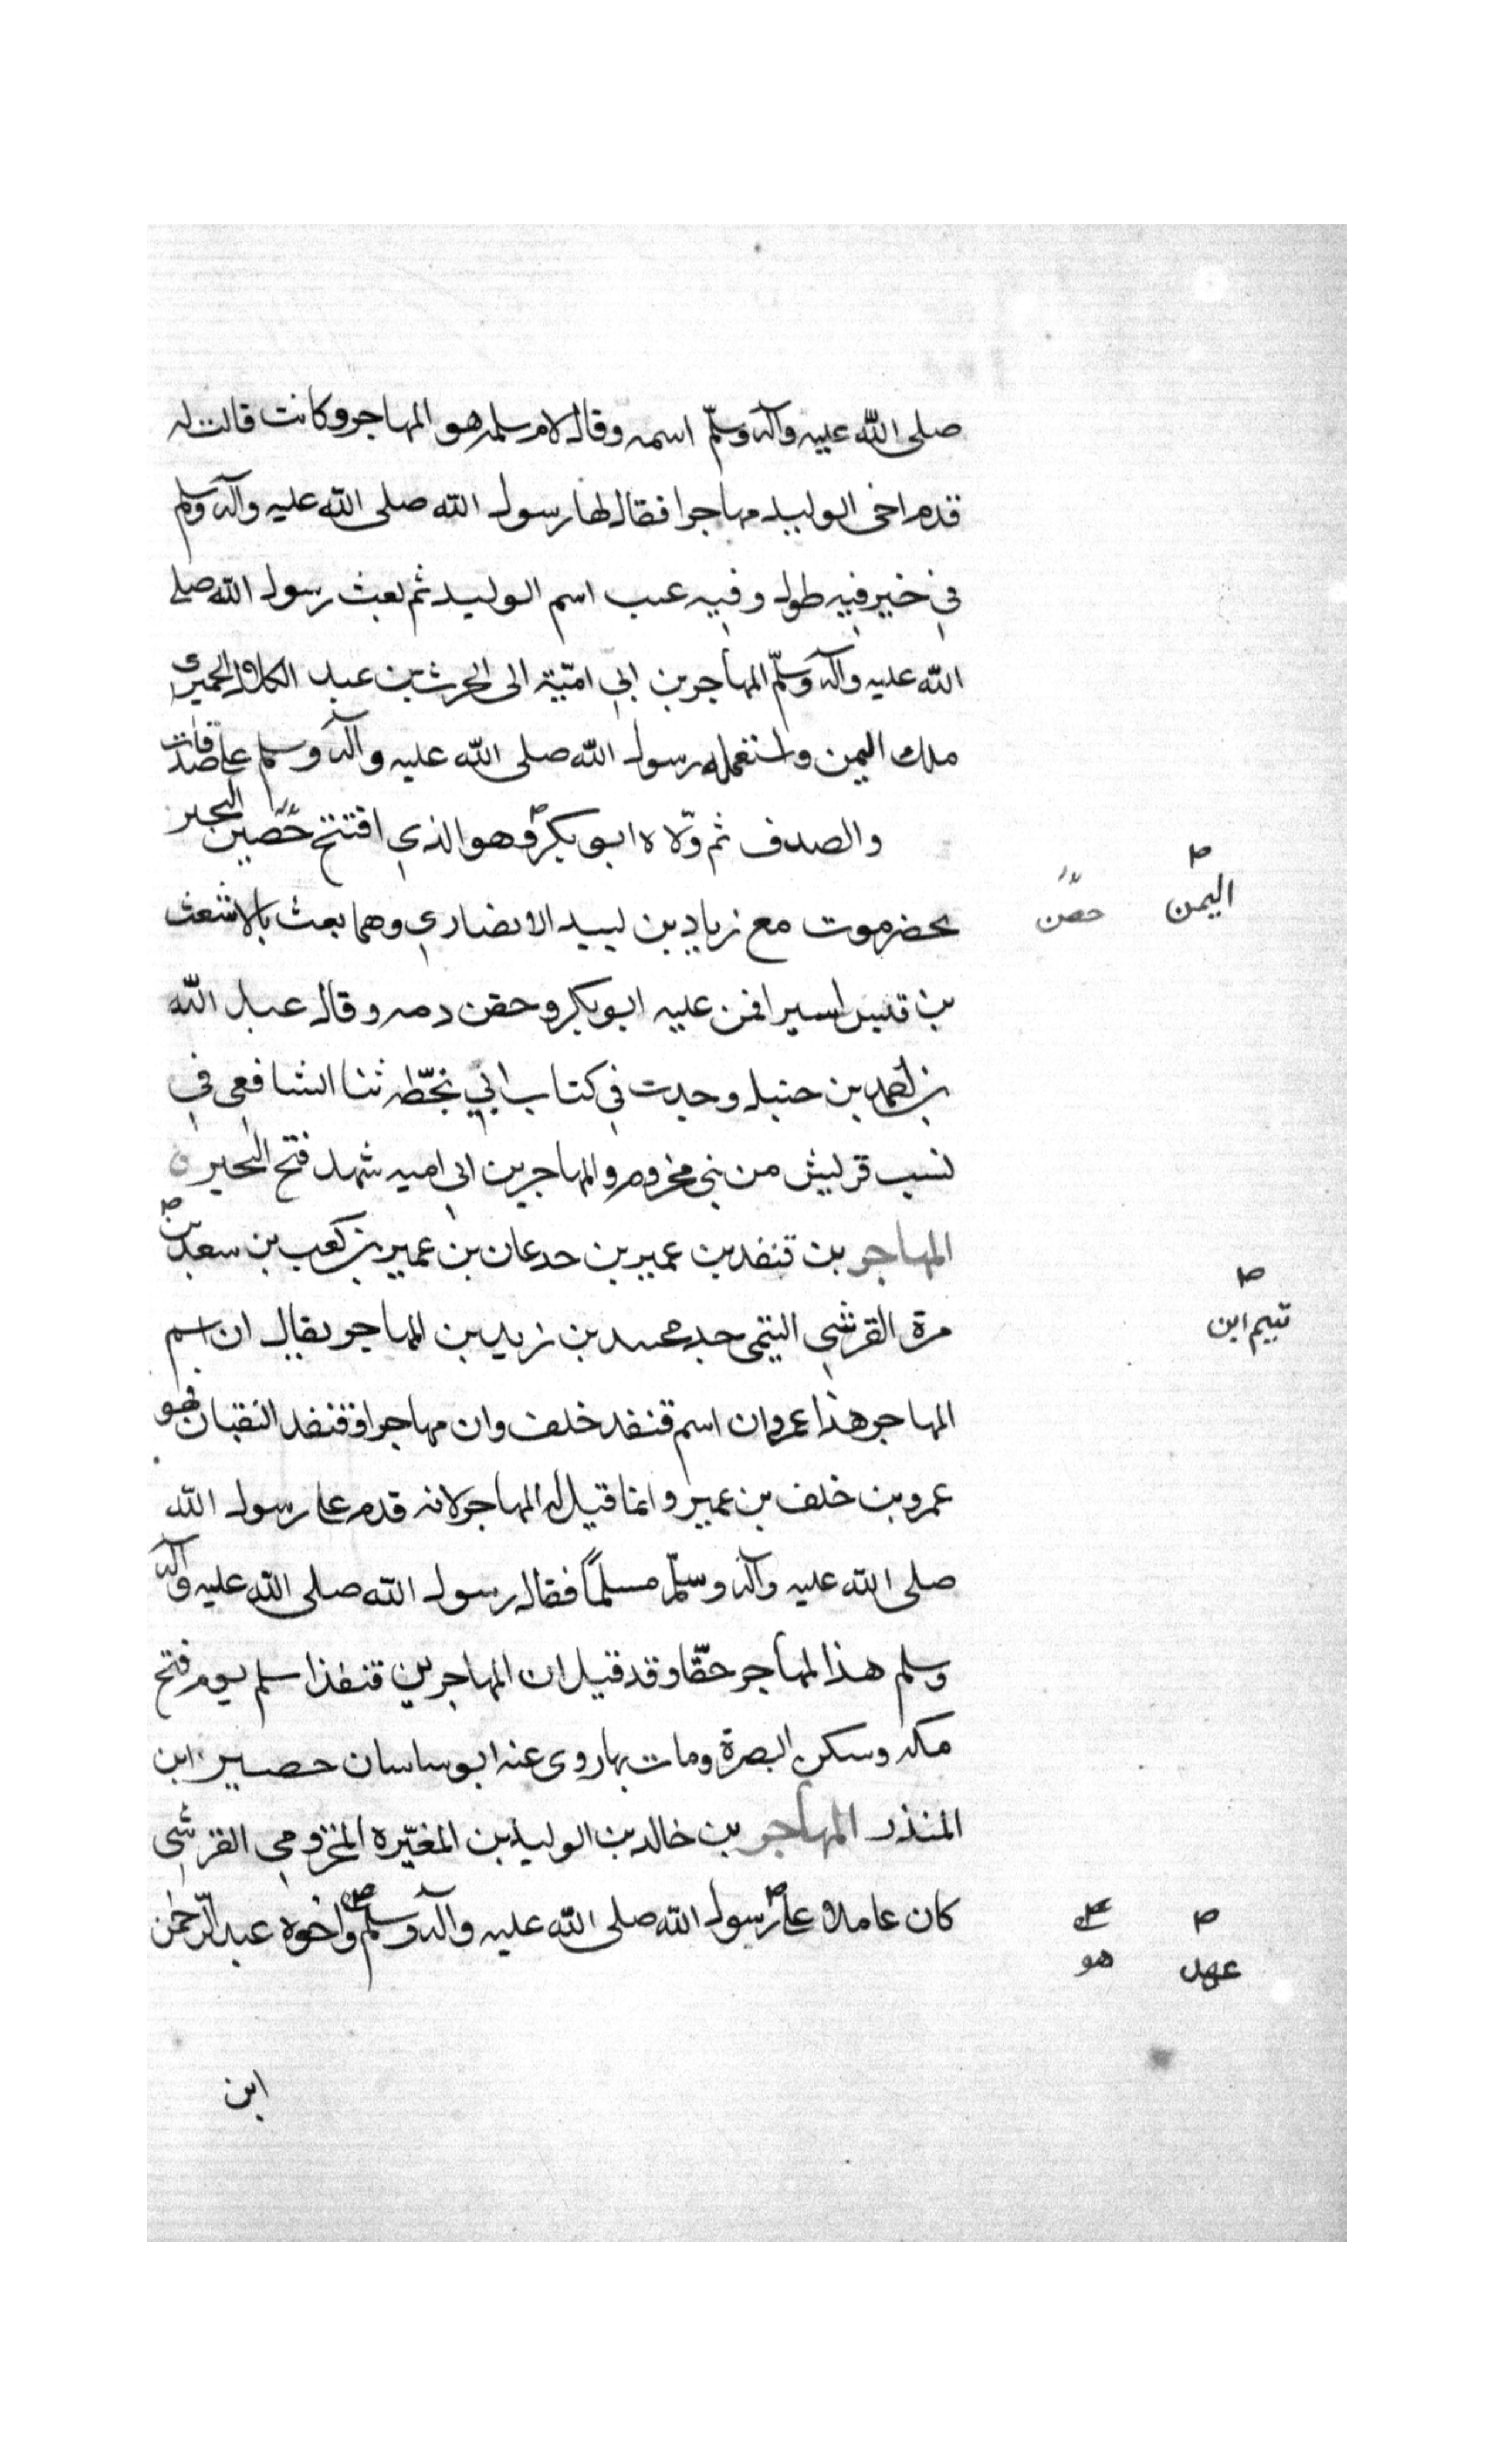 صلى الله عليه وآله وسلّم اسمه وقال لام سلمه هو المهاجر وكانت قالت له
قدم اخى الوليد مهاجرا فقال لها رسول الله صلى الله عليه وآله وسلم
في خبر فيه طول وفيه عيب اسم الوليد ثم بعث رسول الله صلى
الله عليه وآله وسلّم المهاجر بن ابي اميّة الى الحرث بن عبد الكلال الحميرى
ملك اليمن واستعمله رسول الله صلى الله عليه وآله وسلم على صدقات
والصدف ثم ولّاه ابو بكر وهو الذي افتتح حصين النجير
اليمن
حصن
بحضرموت مع زياد بن لبيد الانصاري وهما بعث بالاشعث
بن قيس اسيرا فمن عليه ابو بكر وحقن دمه وقال عبد الله
بن احمد بن حنبل وجدت في كتاب ابي بخطّه ثنا الشافعى في
نسب قريش من بنى مخزوم والمهاجر بن ابي اميه شهد فتح النجير
المهاجر بن قنفد بن عمير بن جدعان بن عمير بن كعب بن سعد بن
تيم ابن
مرة القرشي التيمى جد محمد بن زيد بن المهاجر يقال ان اسم
المهاجر هذا عمرو ان اسم قنفد خلف وان مهاجرا وقنفد النقبان فهو
عمرو بن خلف بن عمير وانما قيل له المهاجر لانه قدم على رسول الله
صلى الله عليه وآله وسلّم مسلماً فقال رسول الله صلى الله عليه وآله
وسلم هذا المهاجر حقّا وقد قيل ان المهاجر بن قنفذ اسلم يوم فتح
مكه وسكن البصرة ومات بها روى عنه ابو ساسان حصير ابن
المنذر المهاجر بن خالد بن الوليد بن المغيّره المخزومي القرشي
كان عاملا على رسول الله صلى الله عليه وآله وسلّم واخوه عبد الرّحمن
عهد
هو
ابن